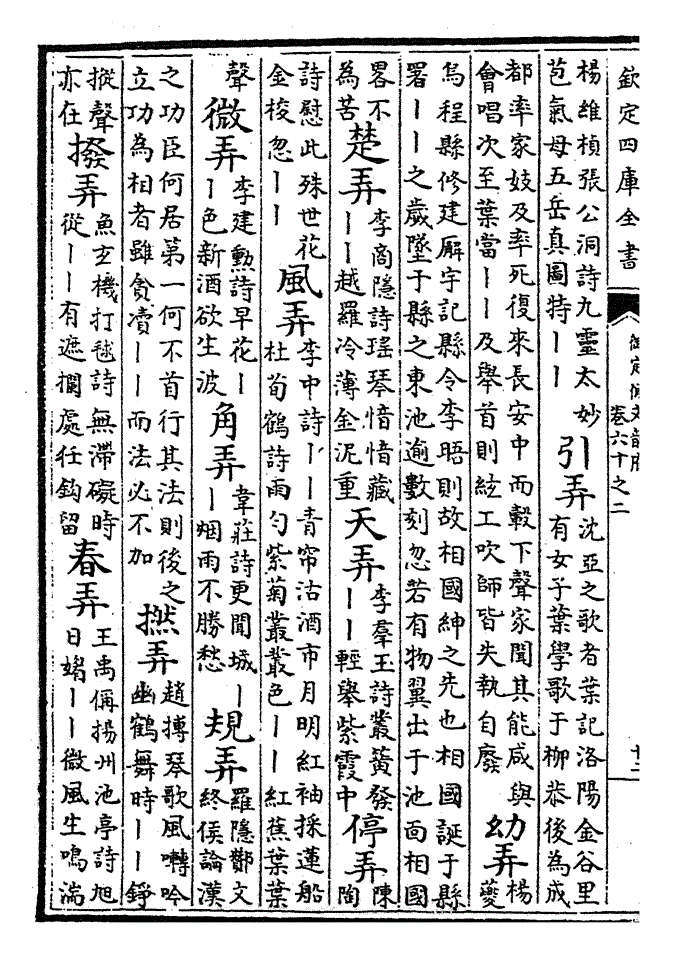 欽定四庫全書 御定佩文韻府 卷六十之二 十二
楊維楨張公洞詩九靈太妙苞氣母五岳真圖特丨丨 引弄 沈亞之歌者葉記洛陽金谷里有女子葉學歌于柳恭後為成
都率家妓及率死復來長安中而轂下聲家聞其能咸與會唱次至葉當丨丨及舉首則絃工吹師皆失執自廢 幼弄 楊夔
烏程縣修建廨宇記縣令李晤則故相國紳之先也相國誕于縣署丨丨之歲墜于縣之東池逾數刻忽若有物翼出于池面相國
畧不為苦 楚弄 李商隱詩瑤琴愔愔藏丨丨越羅冷薄金泥重 天弄 李羣玉詩叢簧發丨丨輕舉紫霞中 停弄 陳陶
詩慰此殊世花金梭忽丨丨 風弄 李中詩丨丨青帘沽酒市月明紅袖採蓮船杜荀鶴詩雨勻紫菊叢叢色丨丨紅蕉葉葉
聲 微弄 李建勳詩早花丨丨色新酒欲生波 角弄 韋莊詩更聞城丨丨烟雨不勝愁 規弄 羅隱鄴文終侯論漢
之功臣何居第一何不首行其法則後之立功為相者雖貪瀆丨丨而法必不加 撚弄 趙摶琴歌風囀吟幽鶴舞時丨丨錚
摐聲亦在 撥弄 魚玄機打毬詩無滯礙時從丨丨有遮攔處任鈎留 春弄 王禹偁揚州池亭詩旭日媚丨丨微風生鳴湍